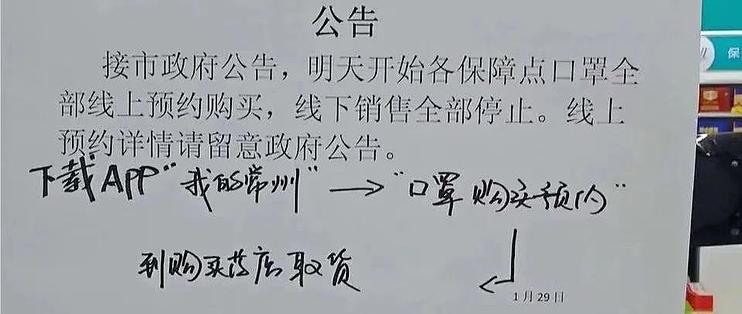 公告
接市政府公告，明天开始各保障点口罩全
部线上预约购买，线下销售全部停止。线上
预约详情请留意政府公告。
下载APP"我的常州"→"口罩购买预约"
到购买药店取货
1月29日
保